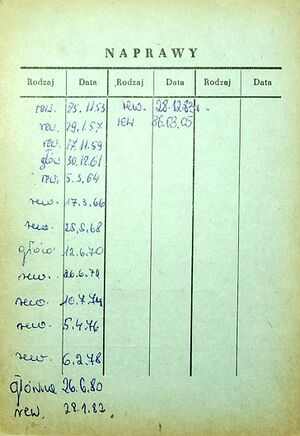 NAPRAWY
Rodzaj Data Rodzaj Data Rodzaj Data
rew. 25.11.53 rew. 28.12.83r.
rew. 29.1.57 rew 86.03.05
rew. 17.11.59
głów 30.12.61
rew. 5.3.64
rew. 17.3.66
rew. 28.8.68
głów. 12.6.70
rew. 26.6.72
rew. 10.7.74
rew. 5.4.76
rew. 6.2.78
główna 26.6.80
rew. 28.1.82